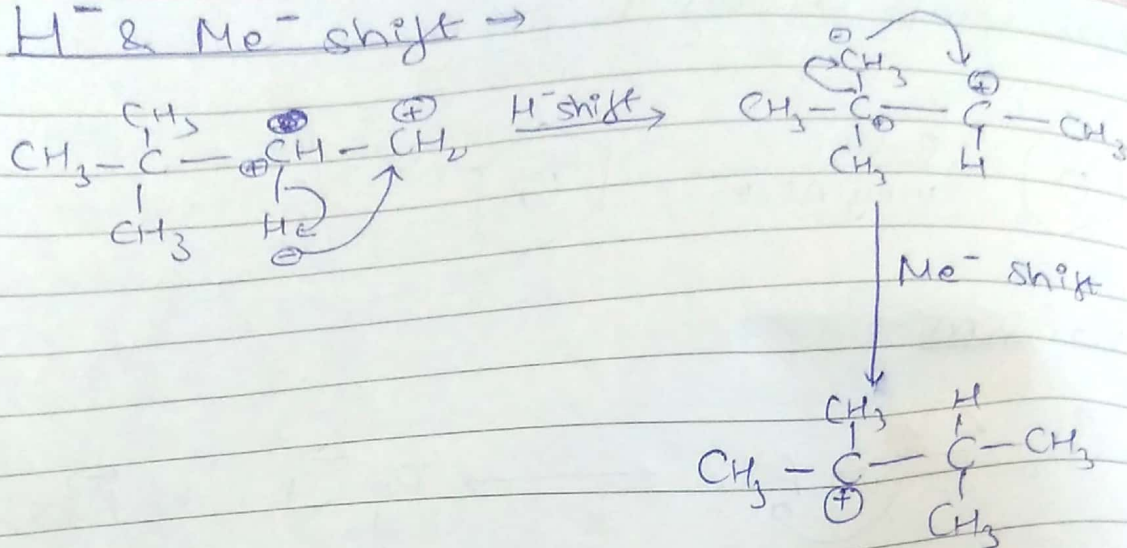 H⁻ & Me⁻ shift →
⊖
CH₃ CH₃ ⊕
CH₃ – C – ⊕CH – CH₂ ⊕ H⁻ shift → CH₃ – C⊕ – C – CH₃
CH₃ H ⊖ CH₃ H
Me⁻ shift
CH₃ H
CH₃ – C – C – CH₃
⊕ CH₃